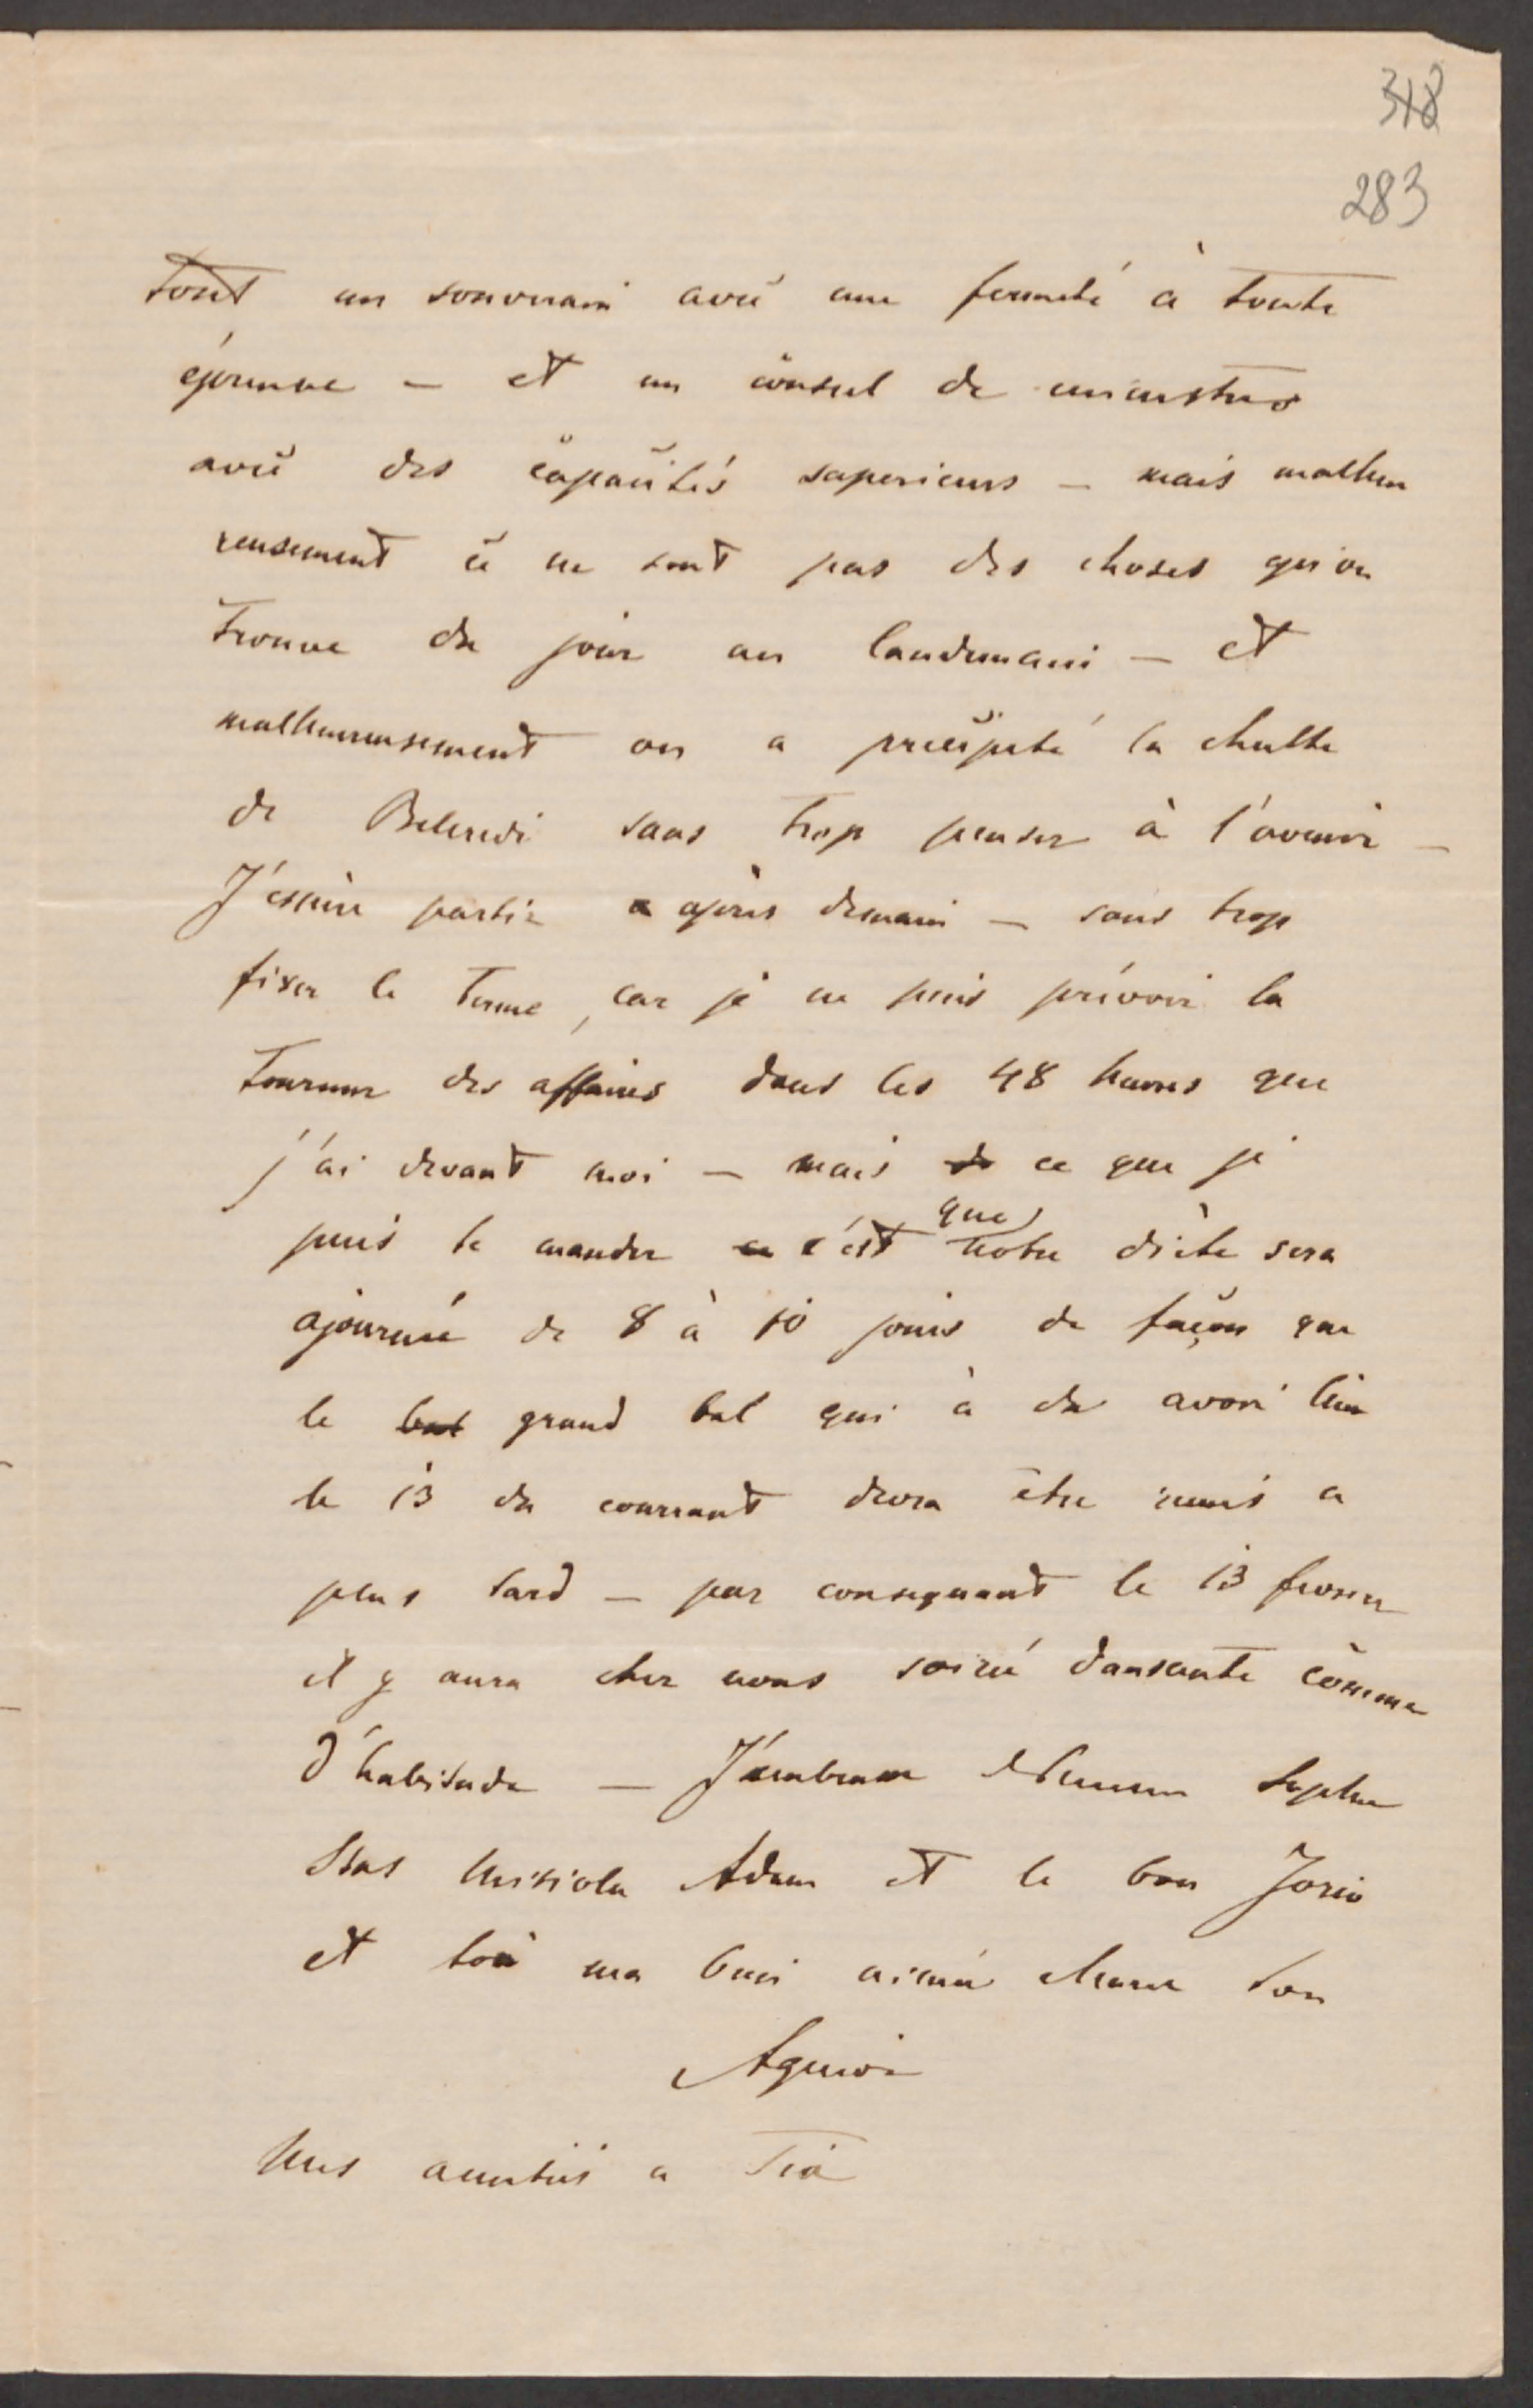 318
283
tout un souverain avec une fermeté à toute
épreuve — et un consul de ministres
avec des capacités superieurs — mais malheu
reusement ce ne sont pas des choses qu'on
trouve du jour au landemain — et
malheureusement on a précipité la chutte
de Belcredi sans trop penser à l'avenir —
J'espère partir a après demain — sans trop
fixer le terme, car je ne puis prévoir la
tournur des affaires dans les 48 heures que
j'ai devant moi — mais de ce que je
puis te mander ce c'est que notre diète sera
ajourneé de 8 à 10 jours de façon que
le bal grand bal qui à du avoir lieu
le 13 du courrant devra être remis a
plus tard — par consequant le 13 fevrier
il y aura chez nous soireé dansante comme
d'habitude — J'embrasse Sophie
Adam et le bon
et toi ma bien aimeé ton
Agenor
Mes amitiés a Tia